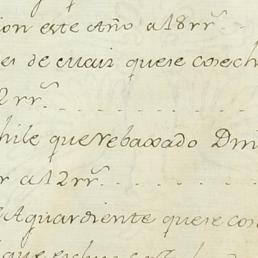 ion este Año a 18 rr.s
es de maiz que se cosech
2 rr.s
hile que rebaxado Dm
r a 12 rr.s
e Aguardiente que se con